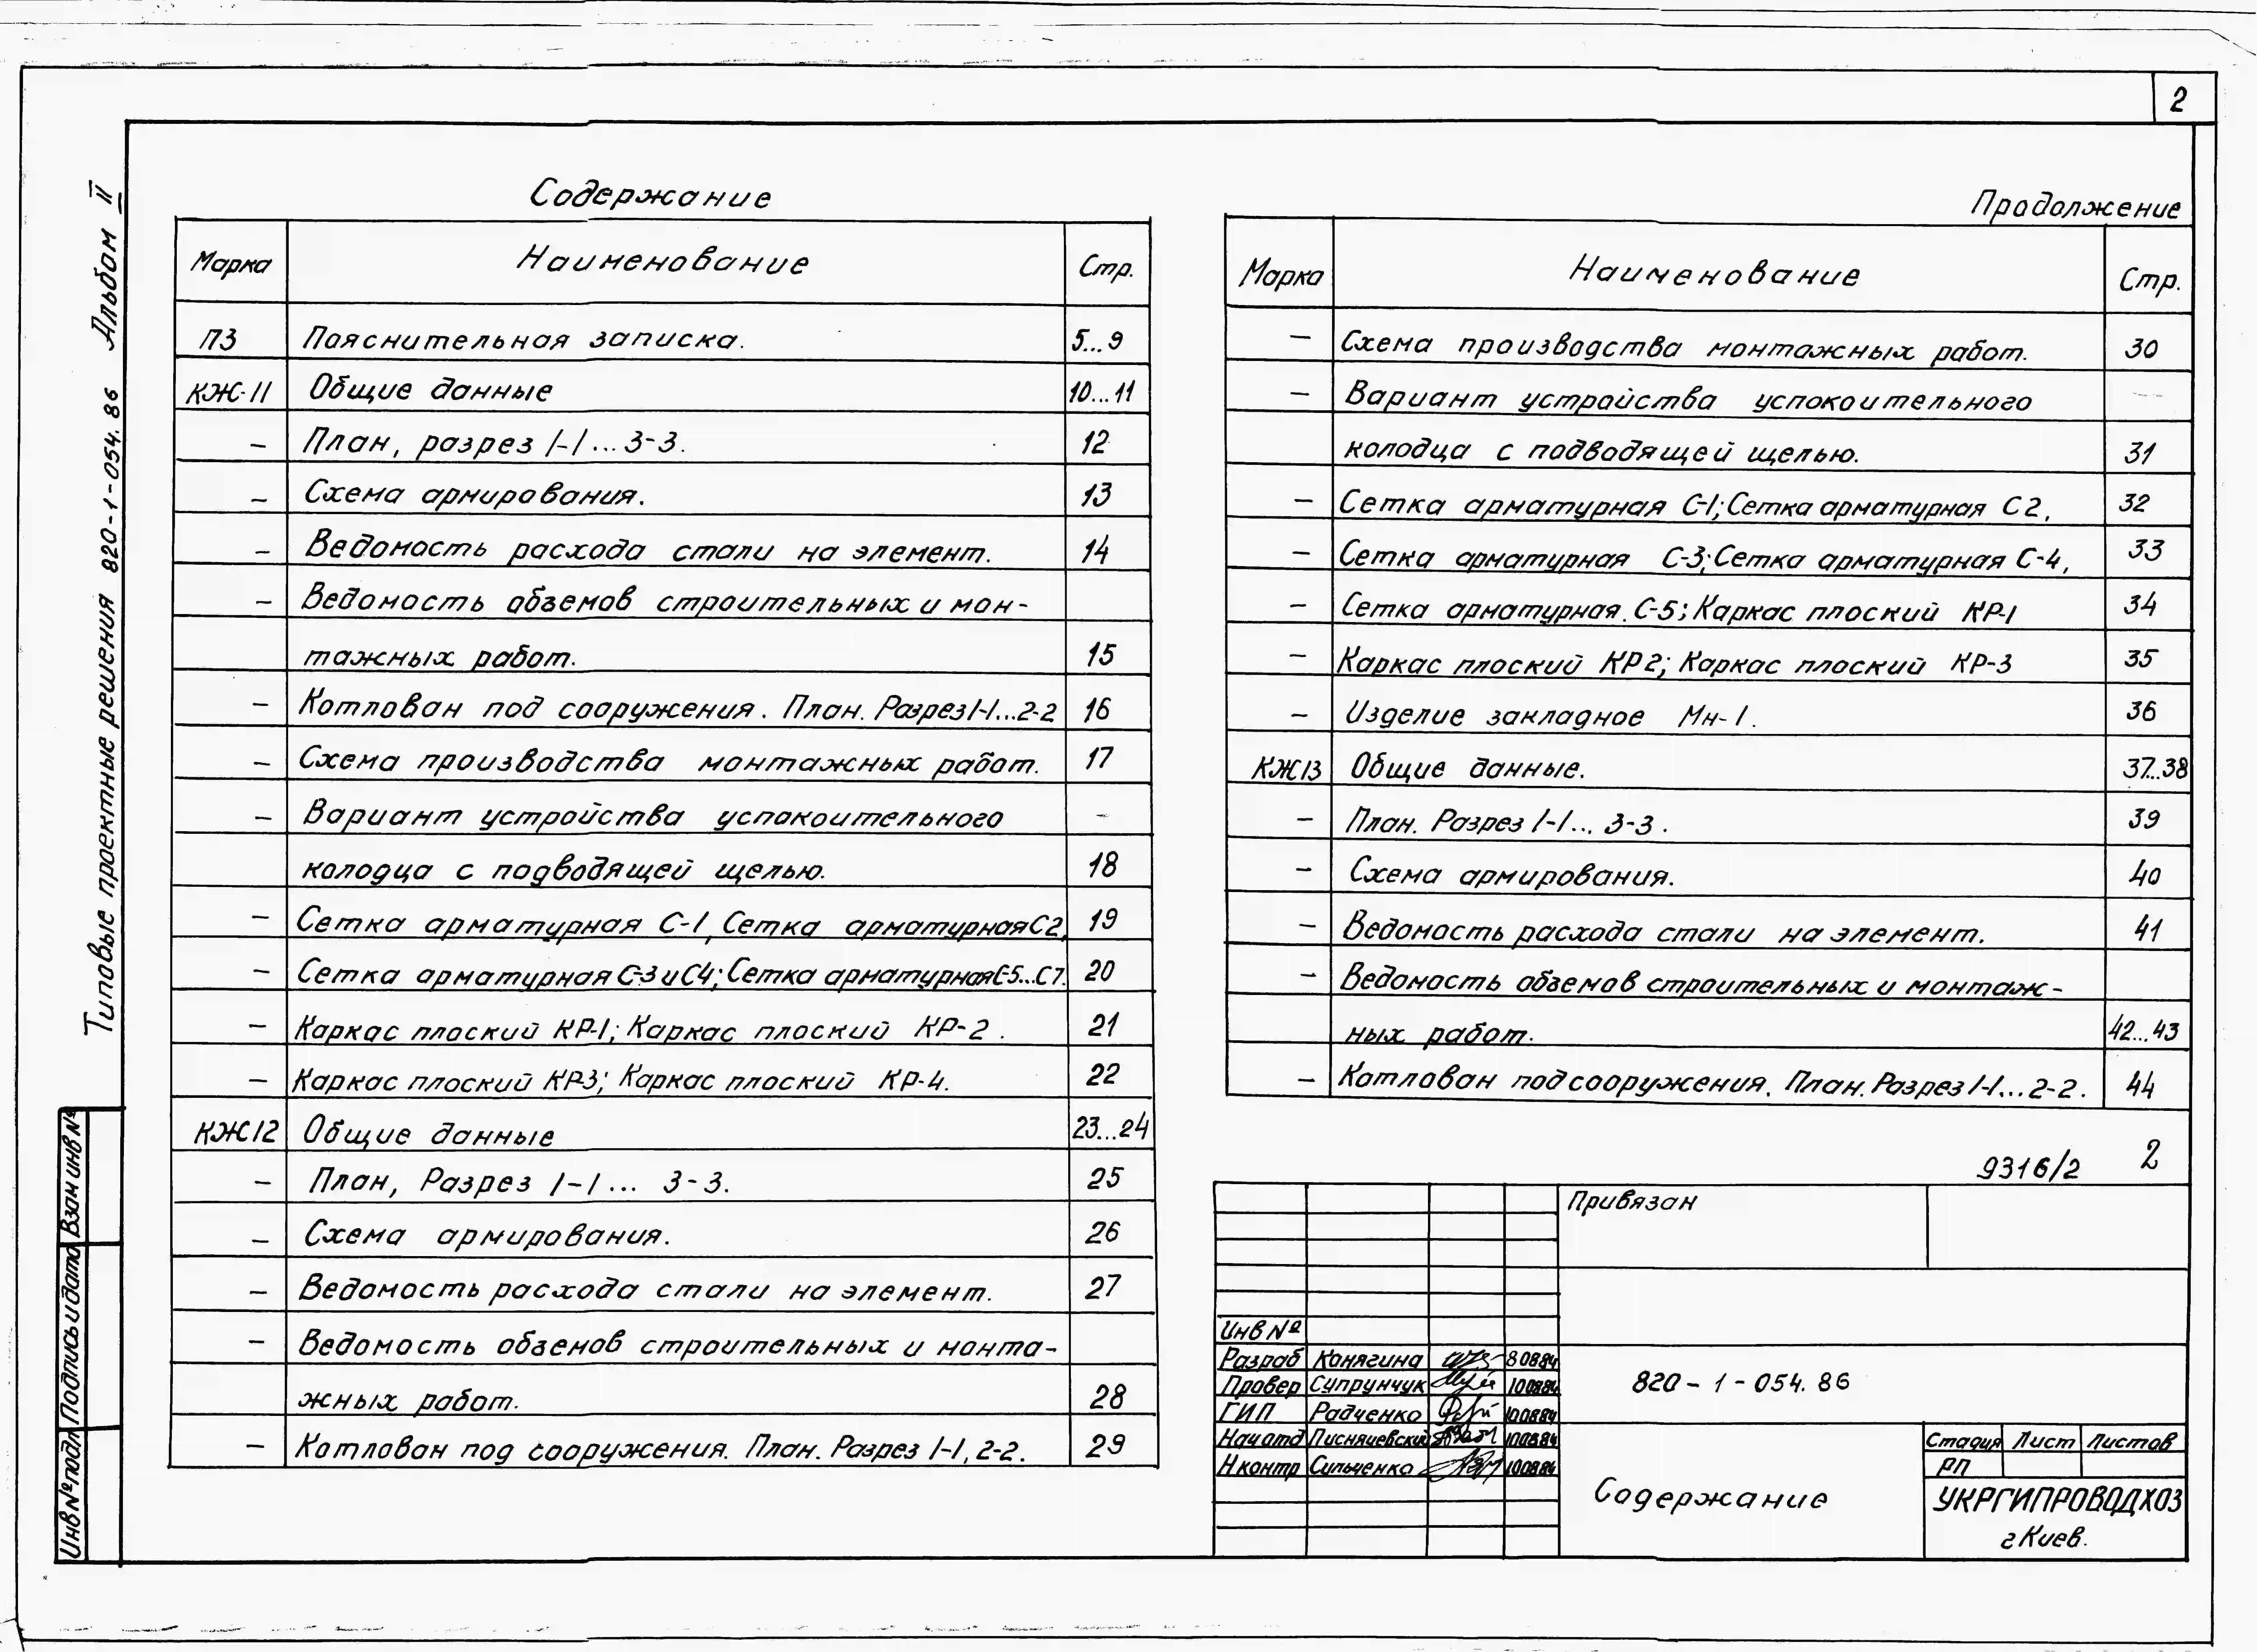 2
Типовые проектные решения 820-1-054.86 Альбом II
Содержание
Марка Наименование Стр.
ПЗ Пояснительная записка. 5...9
КЖ-11 Общие данные 10...11
– План, разрез 1-1...3-3. 12
– Схема армирования. 13
– Ведомость расхода стали на элемент. 14
– Ведомость объемов строительных и мон-
тажных работ. 15
– Котлован под сооружения. План. Разрез 1-1...2-2 16
– Схема производства монтажных работ. 17
– Вариант устройства успокоительного –
колодца с подводящей щелью. 18
– Сетка арматурная С-1, Сетка арматурная С2, 19
– Сетка арматурная С-3 и С4; Сетка арматурная С-5...С7. 20
– Каркас плоский КР-1; Каркас плоский КР-2. 21
– Каркас плоский КР-3; Каркас плоский КР-4. 22
КЖ12 Общие данные 23...24
– План, Разрез 1-1... 3-3. 25
– Схема армирования. 26
– Ведомость расхода стали на элемент. 27
– Ведомость объемов строительных и монта-
жных работ. 28
– Котлован под сооружения. План. Разрез 1-1, 2-2. 29
Продолжение
Марка Наименование Стр.
– Схема производства монтажных работ. 30
– Вариант устройства успокоительного –
колодца с подводящей щелью. 31
– Сетка арматурная С-1; Сетка арматурная С2, 32
– Сетка арматурная С-3; Сетка арматурная С-4, 33
– Сетка арматурная. С-5; Каркас плоский КР-1 34
– Каркас плоский КР2; Каркас плоский КР-3 35
– Изделие закладное Мн-1. 36
КЖ13 Общие данные. 37...38
– План. Разрез 1-1... 3-3. 39
– Схема армирования. 40
– Ведомость расхода стали на элемент. 41
– Ведомость объемов строительных и монтаж-
ных работ. 42...43
– Котлован под сооружения. План. Разрез 1-1...2-2. 44
9316/2 2
Привязан
Инв №
Разраб Конягина 80884
Провер Супрунчук 100884
ГИП Радченко 100884
Нач отд Писнячевский 100884
Н контр Сильченко 100884
820-1-054.86
Содержание
Стадия Лист Листов
РП
УКРГИПРОВОДХОЗ
г Киев.
Взам инв №
Подпись и дата
Инв № подл